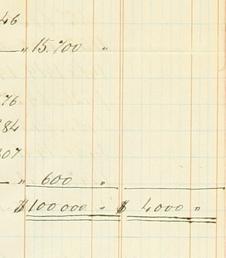 46
" 15.700 "
76
84
307
" 600 "
$ 100000 " $ 4000 "